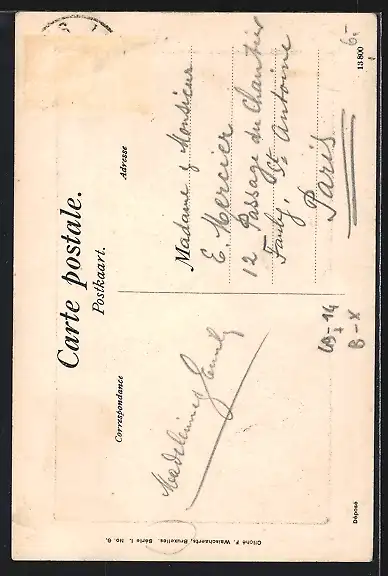 Carte postale.
Postkaart.
Correspondance
Adresse
Madeleine
Madame & Monsieur
E. Mercier
12 Passage du Chantier
Faubg. St Antoine
Paris
13 800
6-
B-X
Cliché F. Walschaerts, Bruxelles. Série I. No. 6.
Déposé